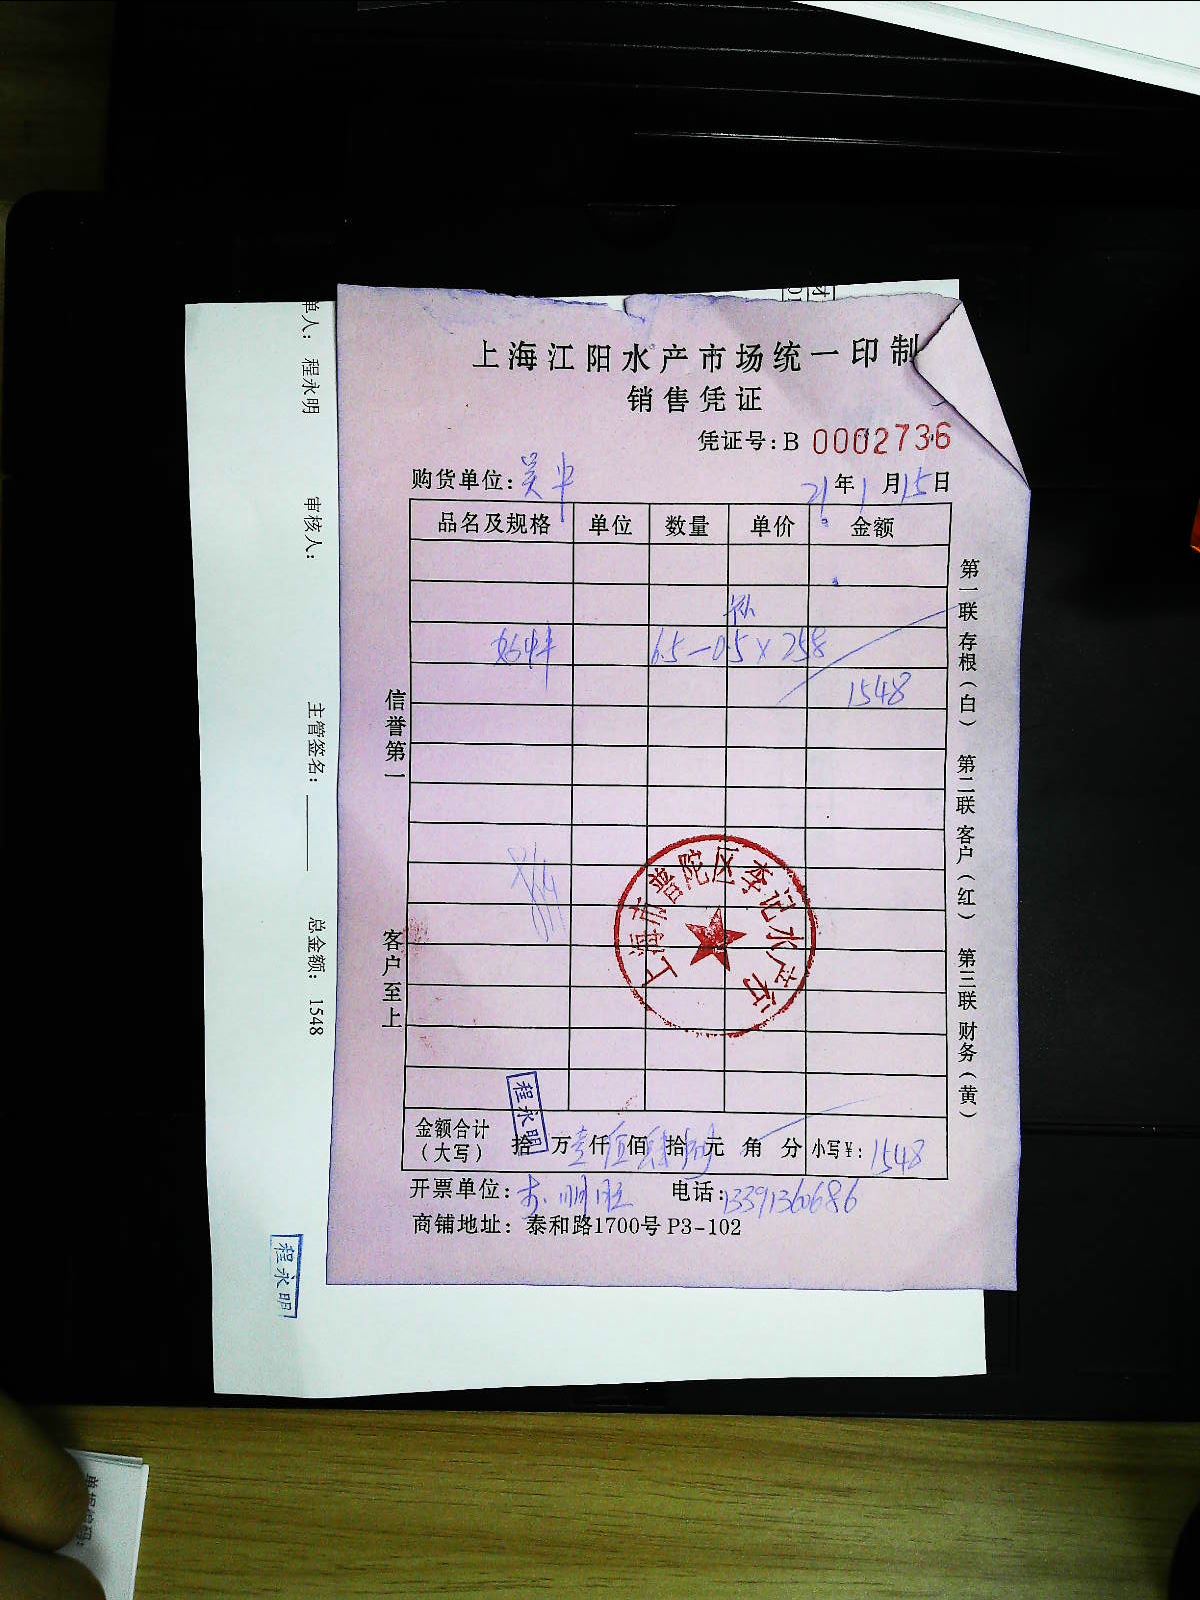 上海江阳水产市场统一印制
销售凭证
凭证号:B 0002736
购货单位:吴中 21年1月15日
品名及规格 单位 数量 单价 金额
6.5-0.5×258
1548
信誉第一 客户至上
第一联存根(白) 第二联客户(红) 第三联财务(黄)
上海市普陀区李记水产行
程永明
金额合计(大写) 拾 万壹仟伍佰肆拾捌元 角 分 小写¥:1548
开票单位: 电话:13391360686
商铺地址:泰和路1700号 P3-102
单人: 程永明 审核人: 主管签名: 总金额: 1548
程永明